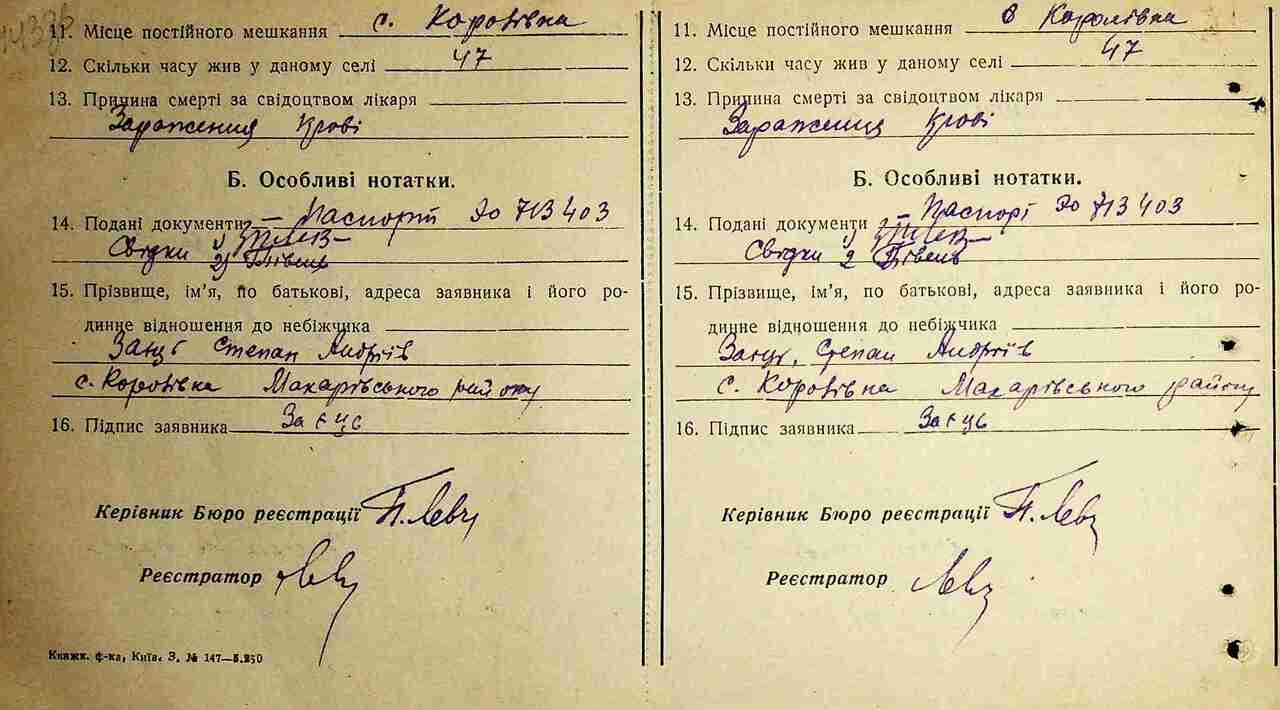 11. Місце постійного мешкання с. Королівка
12. Скільки часу жив у даному селі 47
13. Причина смерті за свідоцтвом лікаря
Зараження крові
Б. Особливі нотатки.
14. Подані документи – Паспорт 713403
Свідки 1)
2) Півень
15. Прізвище, ім’я, по батькові, адреса заявника і його ро-
динне відношення до небіжчика
Заєць Степан Андріїв
с. Королівка Макарівського району
16. Підпис заявника Заєць
Керівник Бюро реєстрації
Реєстратор
Книжк. ф-ка, Київ. З. № 147—5.250
11. Місце постійного мешкання в Королівка
12. Скільки часу жив у даному селі 47
13. Причина смерті за свідоцтвом лікаря
Зараження крові
Б. Особливі нотатки.
14. Подані документи – Паспорт 713403
Свідки 1)
2 Півень
15. Прізвище, ім’я, по батькові, адреса заявника і його ро-
динне відношення до небіжчика
Заєць, Степан Андріїв
с. Королівка Макарівського району
16. Підпис заявника Заєць
Керівник Бюро реєстрації
Реєстратор